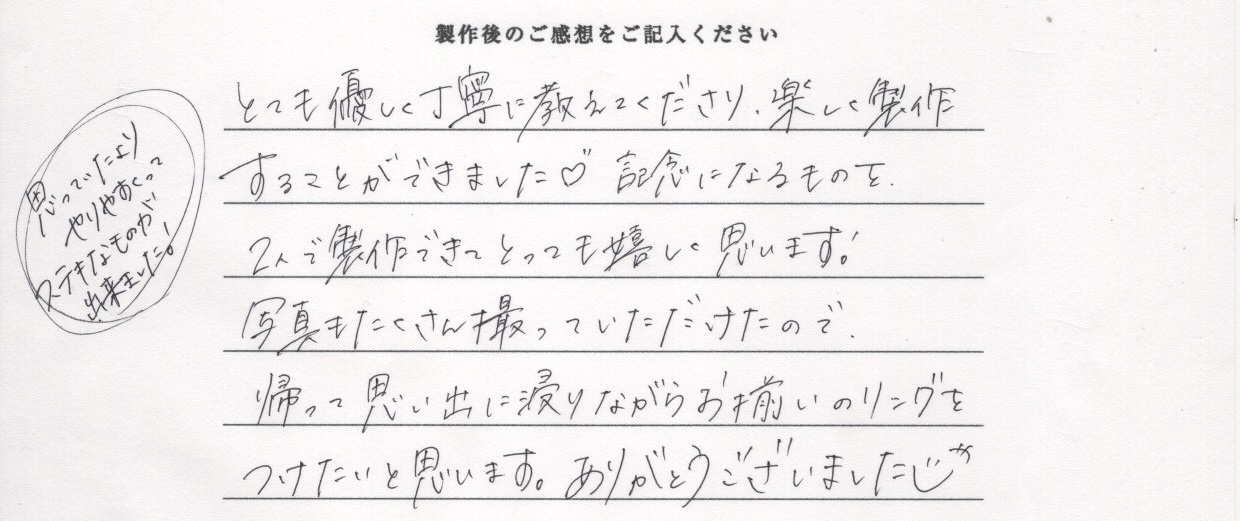 製作後のご感想をご記入ください
とても優しく丁寧に教えてくださり、楽しく製作
することができました♡ 記念になるものを、
2人で製作できてとっても嬉しく思います!
写真もたくさん撮っていただけたので、
帰って思い出に浸りながらお揃いのリングを
つけたいと思います。ありがとうございました
思っていたより
やりやすくって
ステキなものが
出来ました!